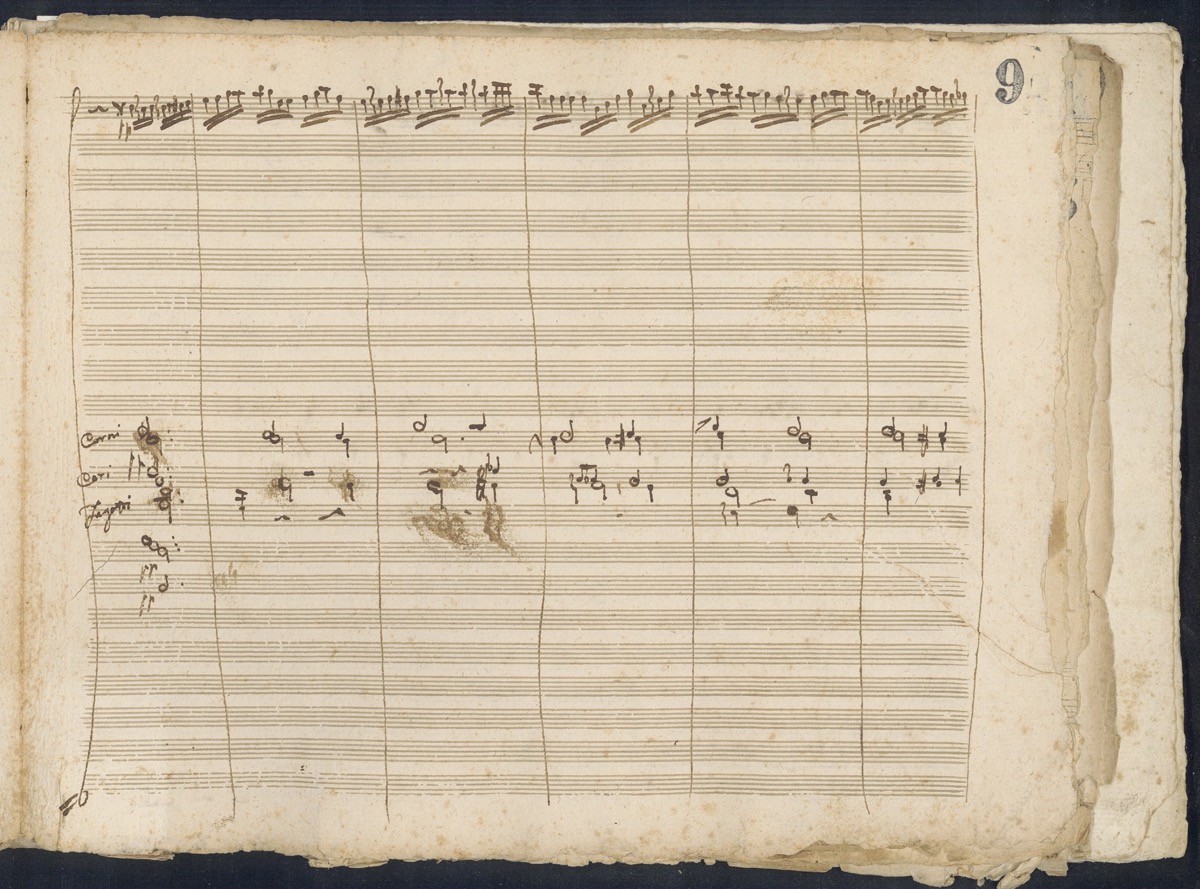 9
Corni
Cori
Fagotti